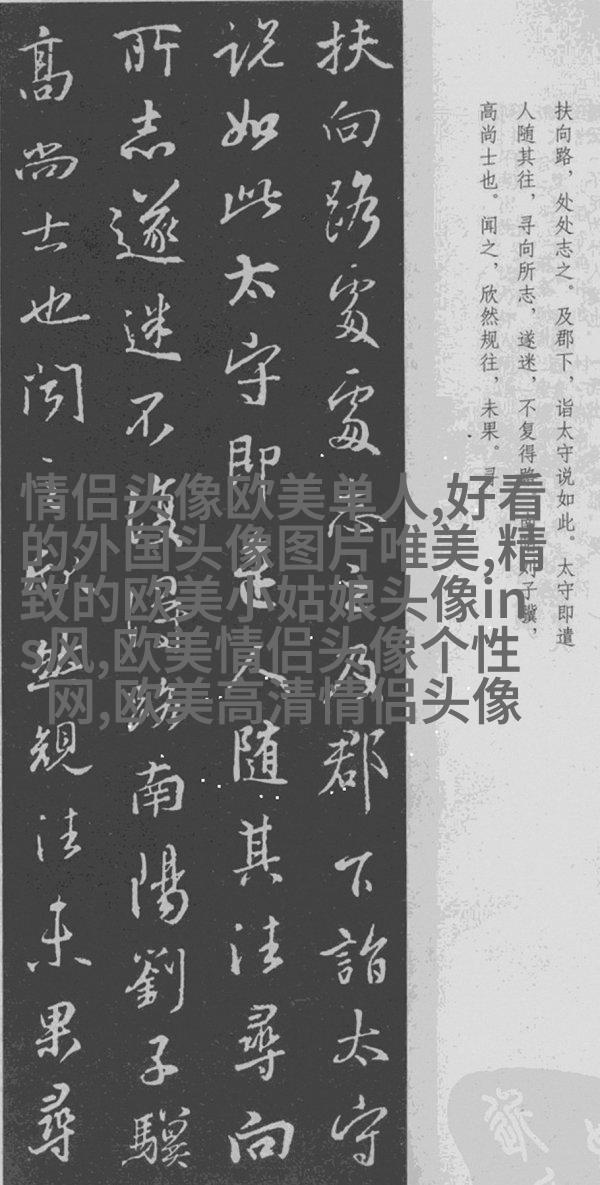 扶向路，处处志之。及郡下，诣太守说如此。太守即遣
人随其往，寻向所志，遂迷，不复得路。南阳刘子骥，
高尚士也。闻之，欣然规往，未果。寻
扶向路處處志之及郡下詣太守
説如此太守即遣人隨其往尋向
所志遂迷不復得路南陽劉子驥
高尚士也聞之欣然規往未果尋
情侣头像欧美单人,好看
的外国头像图片唯美,精
致的欧美小姑娘头像in
s风,欧美情侣头像个性
网,欧美高清情侣头像